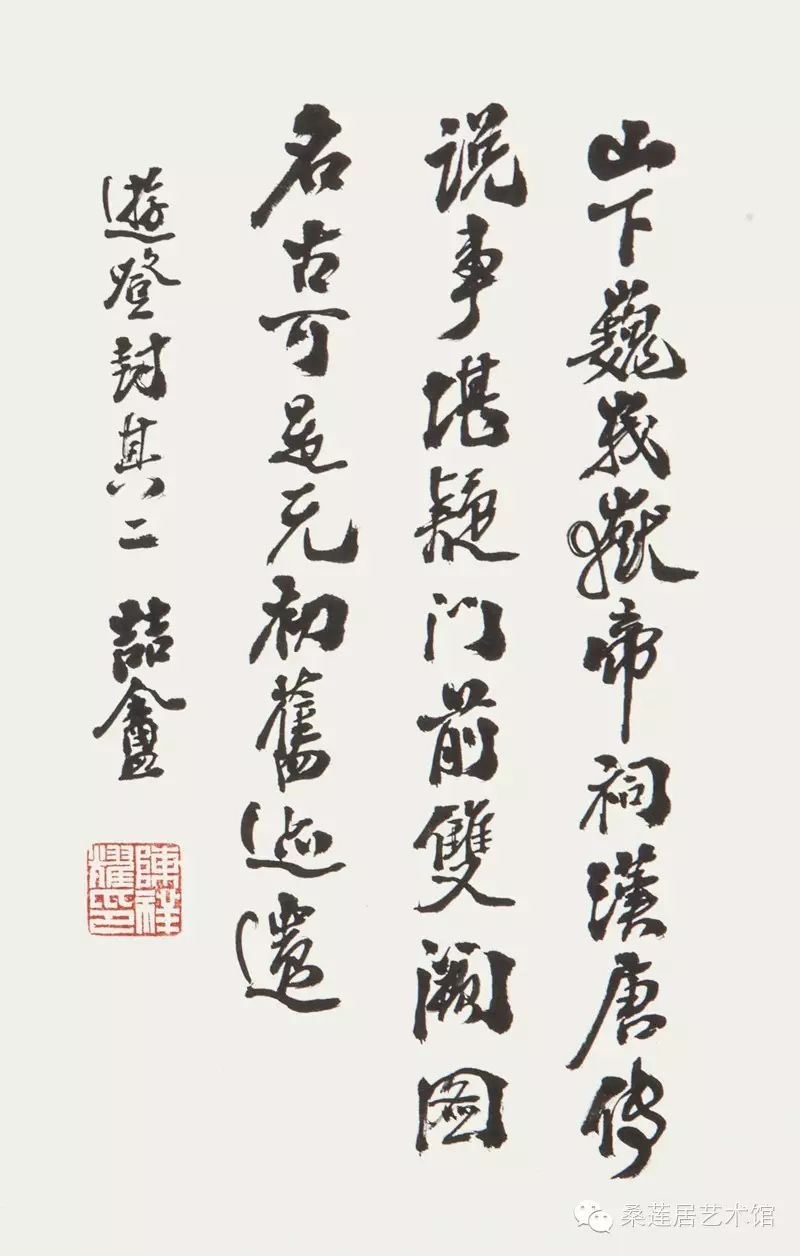 山下巍峩嶽帝祠漢唐傳
说事堪疑门前雙阙图
名古可是元初舊迹遺
遊登封其二 喆盦
陳祥耀印
桑莲居艺术馆